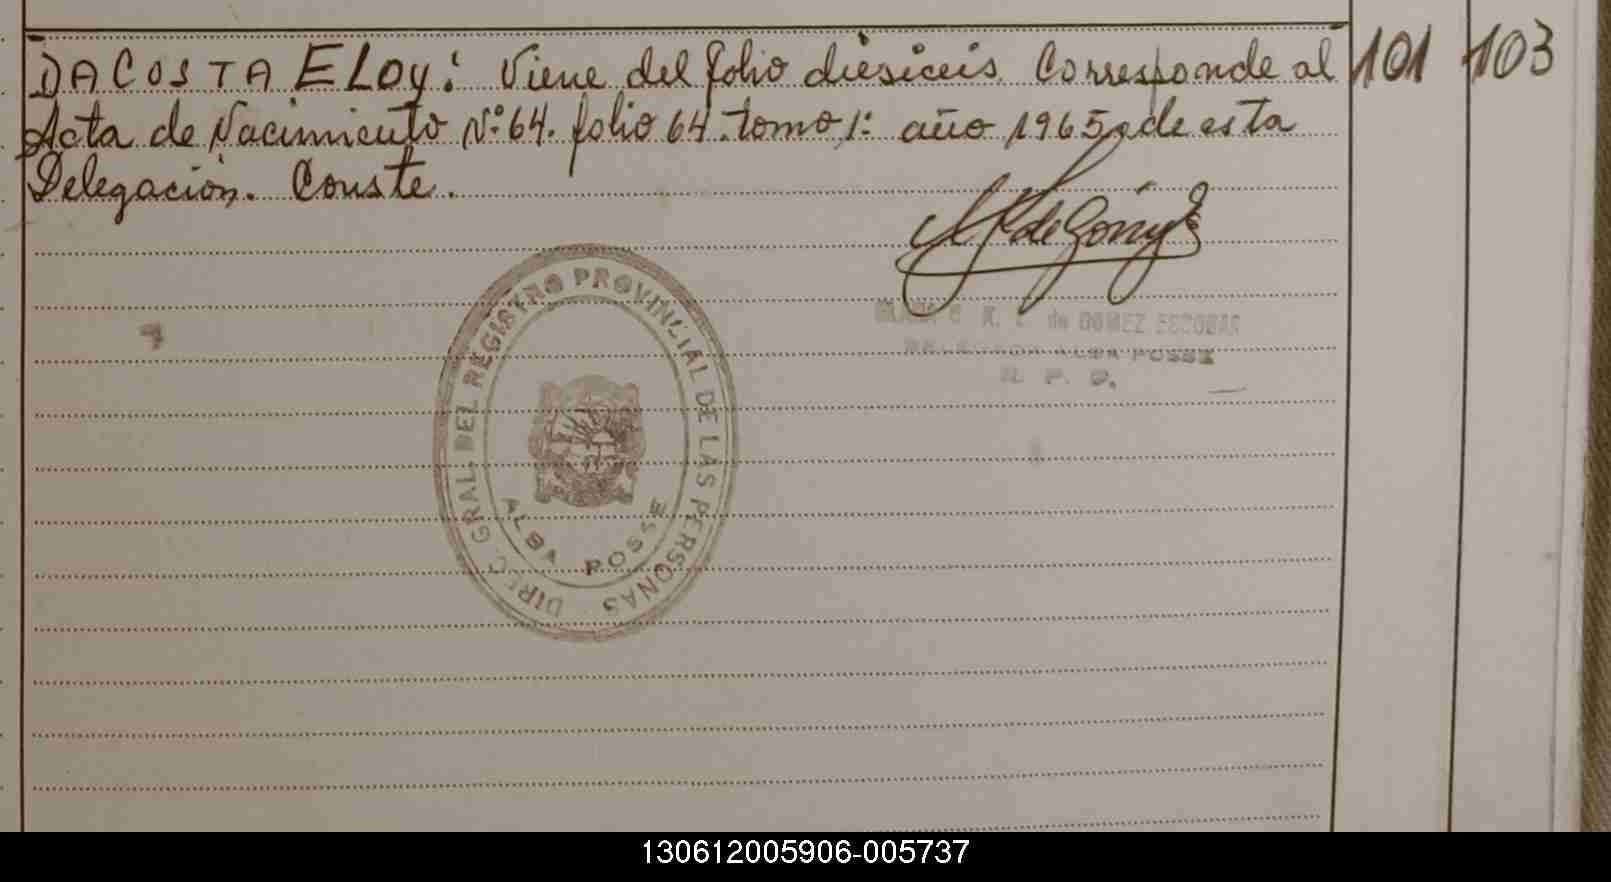 DACOSTA ELOY: Viene del folio diesiceis. Corresponde al 101 103
Acta de Nacimiento Nº 64. folio 64. tomo 1º año 1965 de esta
Delegación. Conste.
DIREC. GRAL. DEL REGISTRO PROVINCIAL DE LAS PERSONAS
ALBA POSSE
de GOMEZ ESCOBAR
ALBA POSSE
R. P. P.
130612005906-005737